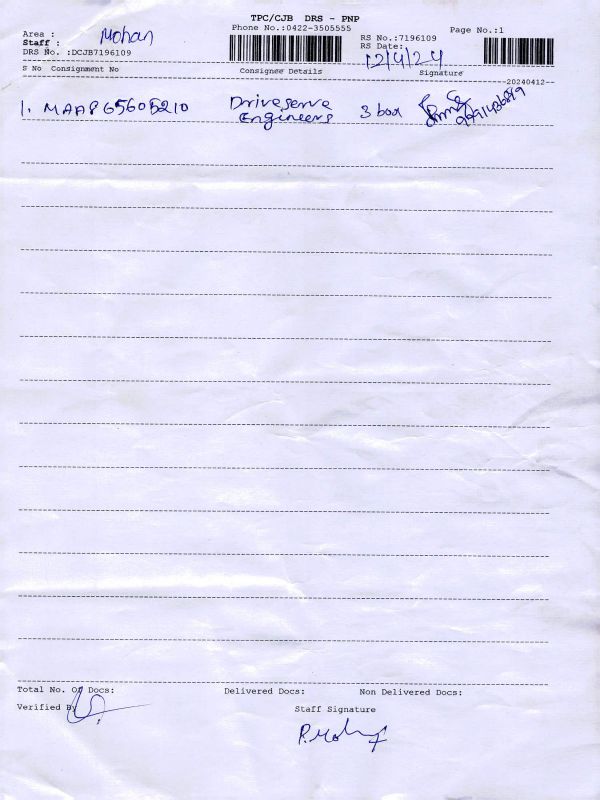 TPC/CJB DRS - PNP
Phone No.:0422-3505555
Page No.:1
Area :
Staff : Mohan
DRS No. :DCJB7196109
RS No.:7196109
RS Date: 12/4/24
S No Consignment No Consignee Details Signature
--20240412--
1. MAA865605210 Driveserve 3 box
Engineers
Total No. Of Docs: Delivered Docs: Non Delivered Docs:
Verified By
Staff Signature
P.Mohan